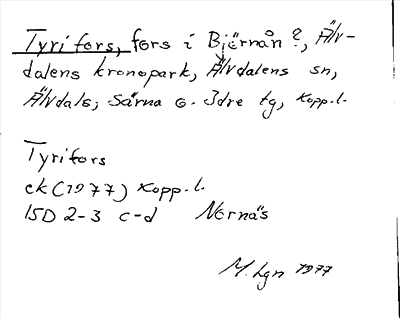 Tyrifors, fors i Bjërnån?, Älv-
dalens kronopark, Älvdalens sn,
Älvdals, Särna o. Idre tg, Kopp.l.
Tyrifors
ek (1977) Kopp.l.
15D 2-3 c-d Nornäs
M. Lgn 1977